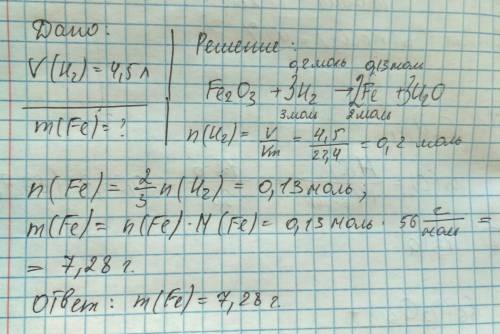 Дано:
V(H₂) = 4,5 л
m(Fe) = ?
Решение:
0,2 моль 0,13 моль
Fe₂O₃ + 3H₂ → 2Fe + 3H₂O
3 моль 2 моль
n(H₂) = V/Vm = 4,5/22,4 = 0,2 моль
n(Fe) = 2/3 n(H₂) = 0,13 моль,
m(Fe) = n(Fe) · M(Fe) = 0,13 моль · 56 г/моль =
= 7,28 г.
Ответ: m(Fe) = 7,28 г.